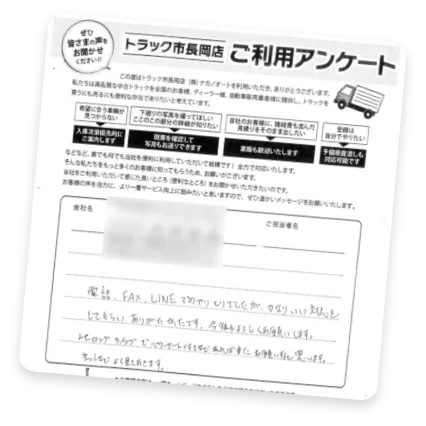 ぜひ
皆さまの声を
お聞かせ
ください!!
トラック市長岡店 ご利用アンケート
この度はトラック市長岡店(株)ナカノオートを利用いただき、ありがとうございます。
私たちは高品質な中古トラックを全国のお客様、ディーラー様、自動車販売業者様に提供し、トラックを
買うにも売るにも便利な存在でありたいと考えています。
希望に合う車輌が
見つからない
下廻りの写真を撮ってほしい
ここのこの部分の詳細が知りたい
自社のお客様に、諸経費も含んだ
見積りをそのまま出したい
登録は
自分でやりたい
入庫次第優先的に
ご案内します
現車を確認して
写真もお送りできます
業販も歓迎いたします
予備検査渡しも
対応可能です
などなど、誰でも何でも当社を便利に利用していただいて結構です!全力で対応いたします。
そんな私たちをもっと多くのお客様に知ってもらうため、お願いがございます。
当社をご利用いただいて感じた良いところ(便利なところ)をお聞かせいただきたいのです。
お客様の声を体力に、より一層サービス向上に励みたいと思いますので、ぜひ温かいメッセージをお願いいたします。
会社名
ご担当者名
電話、FAX、LINEでのやりとりでしたが、かなりいい対応を
してもらい ありがたかったです。今後もよろしくお願いします。
あれば また お願い 思います。
よく見ておきます。